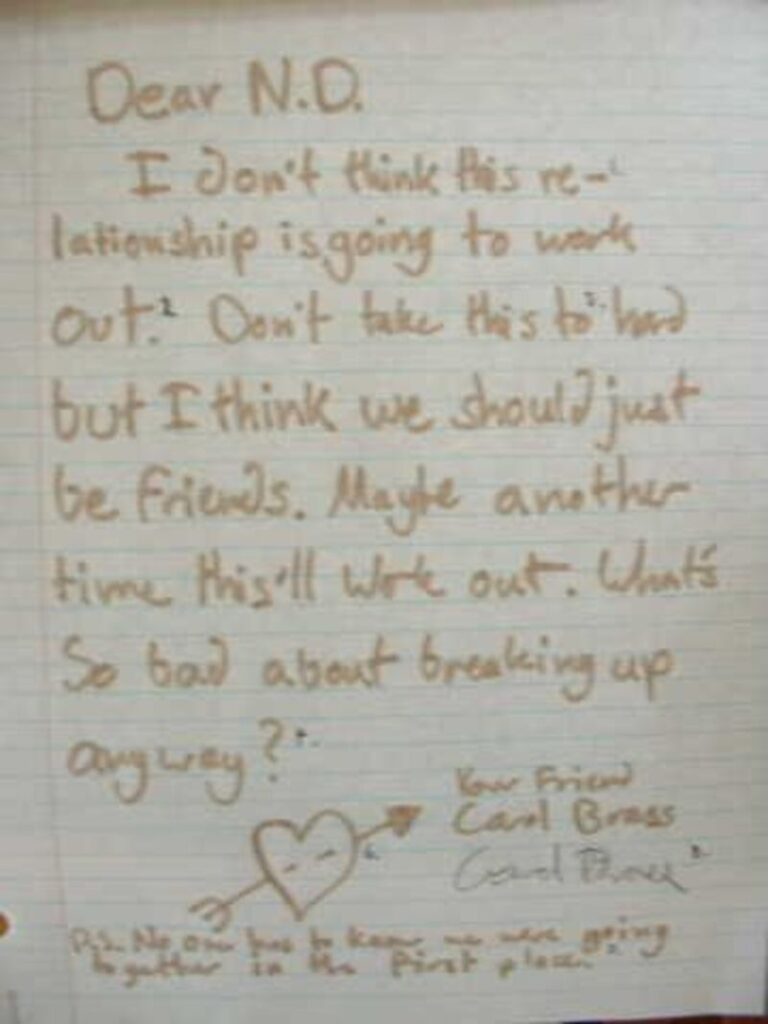 Dear N.D.
I don't think this re-
lationship is going to work
out.² Don't take this to hard
but I think we should just
be friends. Maybe another
time this'll work out. What's
so bad about breaking up
anyway?
Your Friend
Carol Brass
P.S. No one has to know we were going
together in the first place.